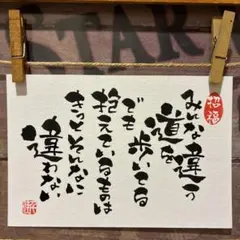 招福
みんな違う
道を
でも 歩いてる
抱えているものは
きっとそんなに
違わない